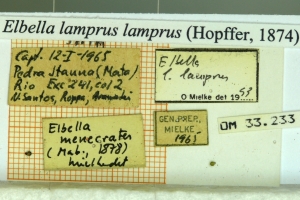 Elbella lamprus lamprus (Hopffer, 1874)
Capt. 12-I-1965
Pedra Itauna (Mata)
Rio Exc 241, col 2
N. Santos, Roppa,
Elbella
l. lamprus
O Mielke det 19 53
Elbella
menecrates
(Mab., 1878)
Mielke det
GEN. PREP.
MIELKE
1965
DM 33.233